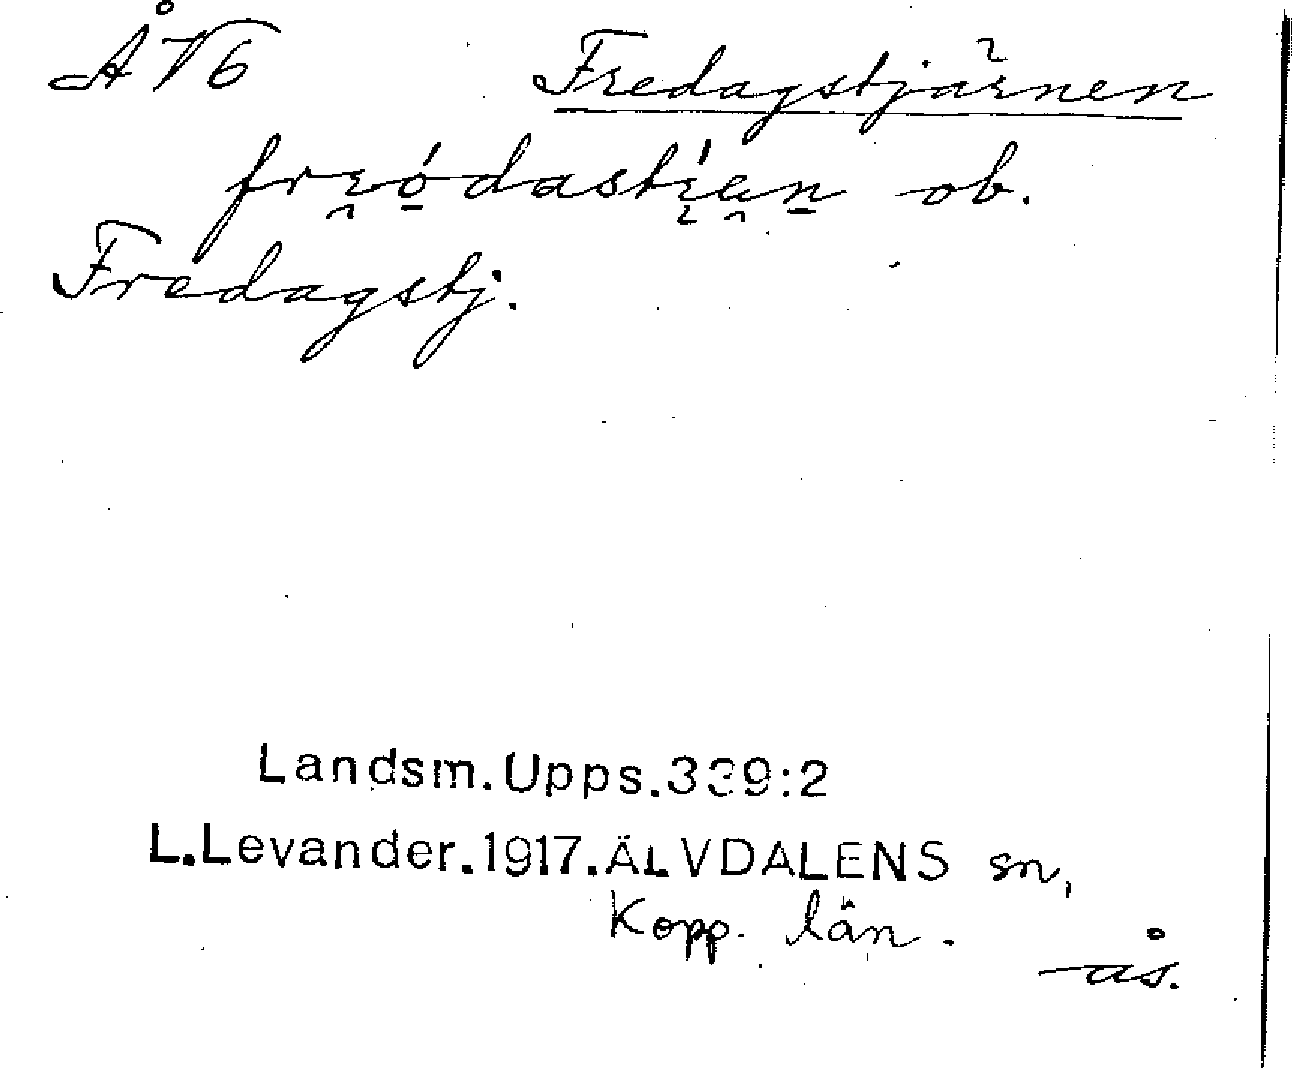 ÅV6 Fredagstjärnen
ob.
Fredagstj.
Landsm.Upps.339:2
L.Levander.1917.ÄLVDALENS sn,
Kopp. län.
ås.